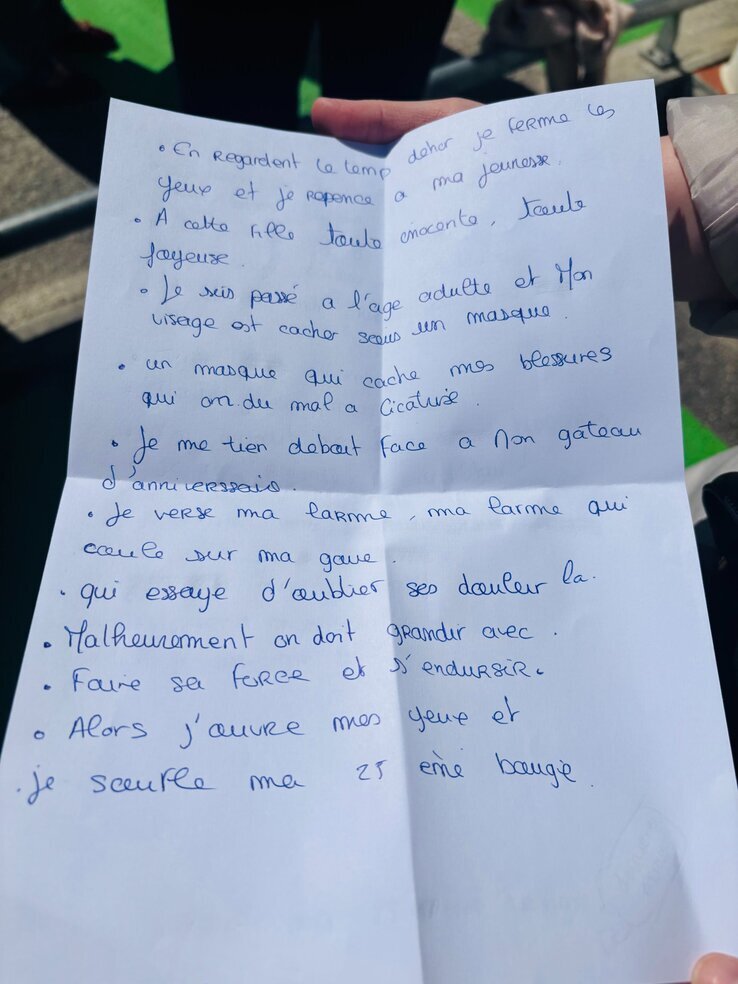 • En Regardent le temp dehor je ferme les
yeux et je repence a ma jeunesse.
• A cette fille toute inocente, toute
joyeuse.
• Je suis passé a l'age adulte et Mon
visage est cacher sous un masque.
• un masque qui cache mes blessures
qui on du mal a Cicatrisé.
• Je me tien debout face a Mon gateau
d'anniverssais.
• Je verse ma larme, ma larme qui
coule sur ma goue.
• qui essaye d'oublier ses douleur la.
• Malheurement on doit grandir avec.
• Faire sa force et s'endursir.
• Alors j'ouvre mes yeux et
• je soufle ma 25 eme bougie.